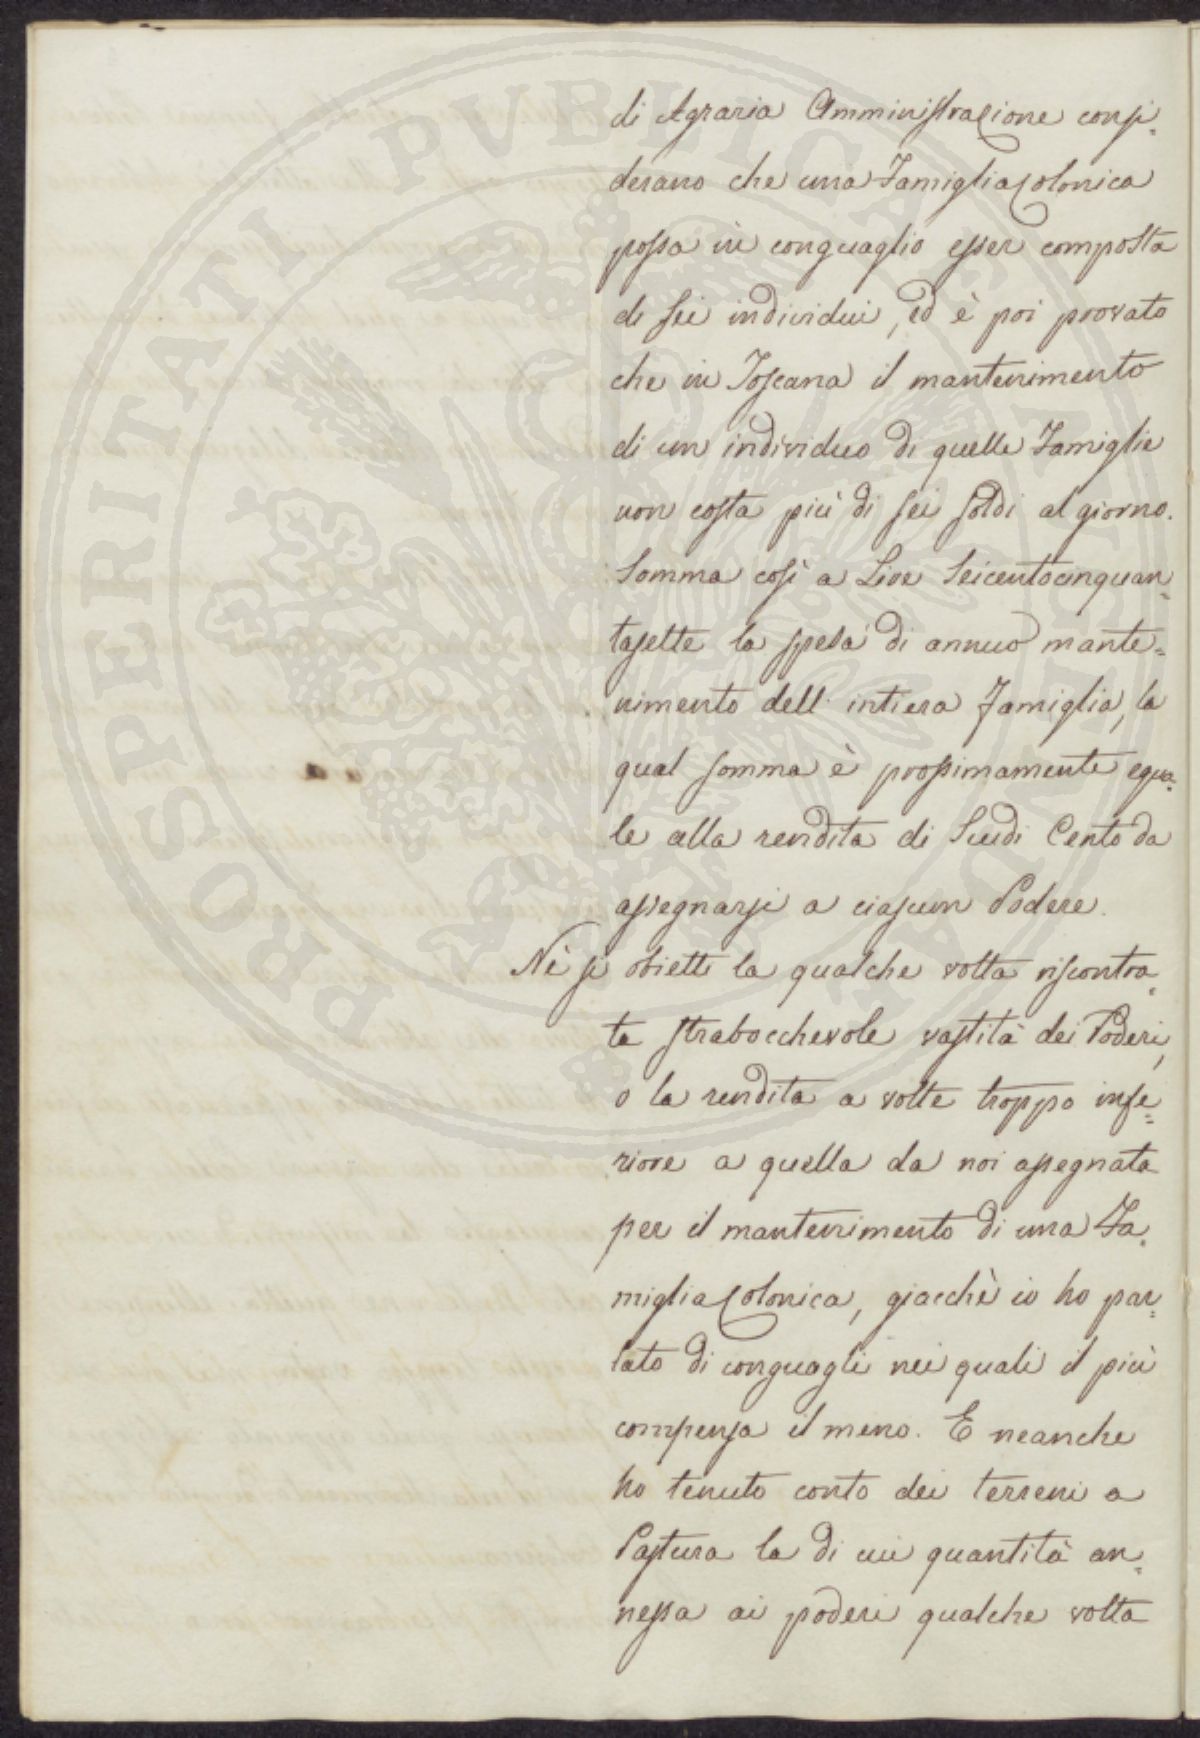 di Agraria Amministrazione consi-
derano che una Famiglia Colonica
possa in conguaglio esser composta
di sei individui, ed è poi provato
che in Toscana il mantenimento
di un individuo di quelle Famiglie
non costa più di sei soldi al giorno.
Somma così a Lire Seicentocinquan=
tasette la spesa di annuo mante=
nimento dell' intiera Famiglia, la
qual somma è prossimamente egua=
le alla rendita di Scudi Cento da
assegnarsi a ciascun Podere.
Nè si obietti la qualche volta riscontra=
ta strabocchevole vastità dei Poderi,
o la rendita a volte troppo infe=
riore a quella da noi assegnata
per il mantenimento di una Fa=
miglia Colonica, giacchè io ho par=
lato di conguagli nei quali il più
compensa il meno. E neanche
ho tenuto conto dei terreni a
Pastura la di cui quantità an=
nessa ai poderi qualche volta
PROSPERITATI PVBLICAE AVGENDAE